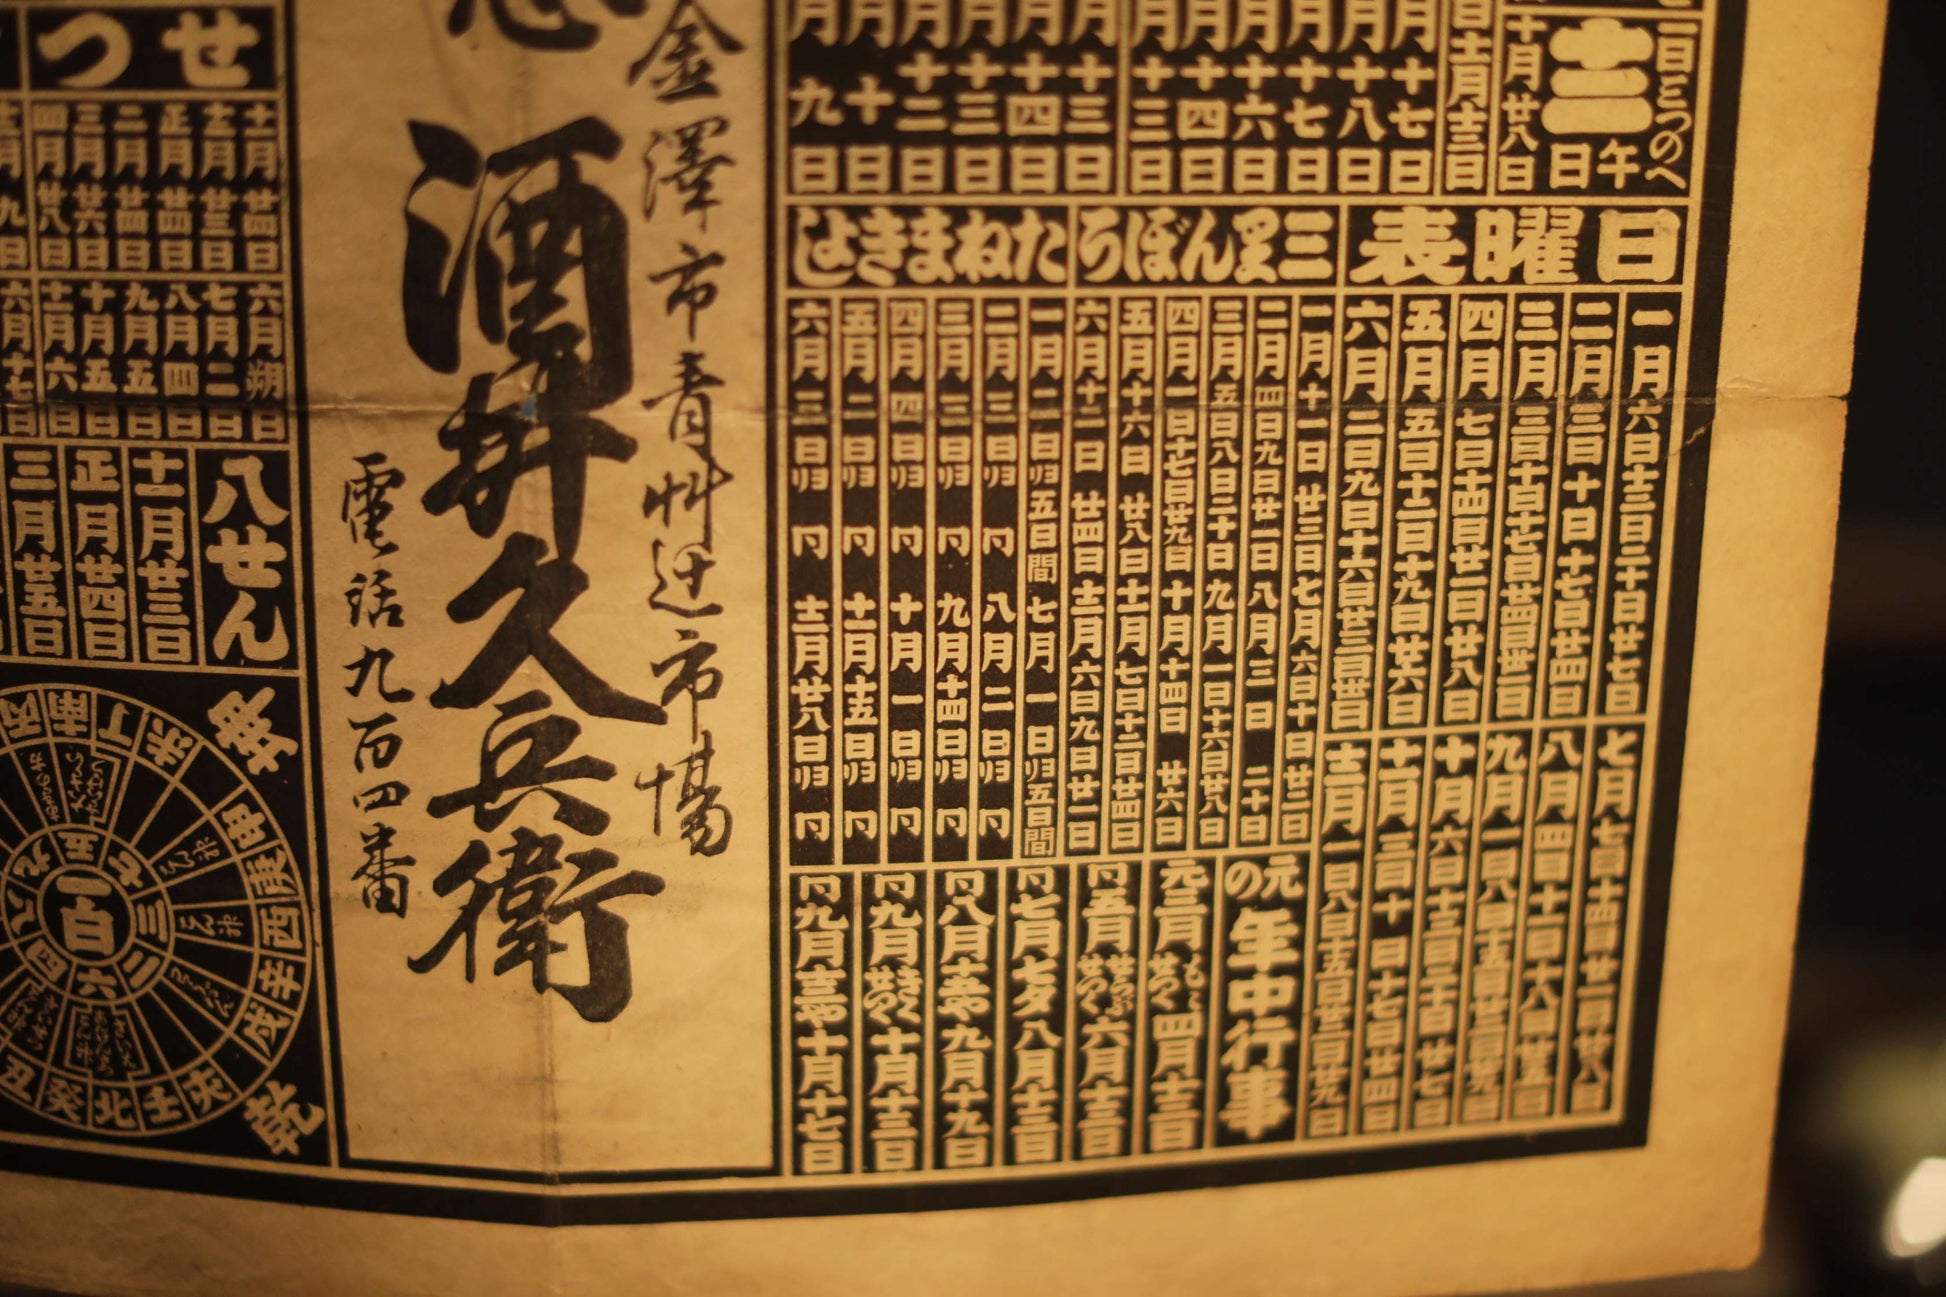 二日三つのへ
十二
午
日
十月廿八日
日十二月十三日
月十七日
月十八日
月十七日
月十六日
月十四日
月十三日
月十三日
月十四日
月十三日
月十二日
月十日
月九日
日曜表
一月六日十三日二十日廿七日
二月三日十日十七日廿四日
三月三日十日十七日廿四日卅一日
四月七日十四日廿一日廿八日
五月五日十二日十九日廿六日
六月二日九日十六日廿三日卅日
七月七日十四日廿一日廿八日
八月四日十一日十八日廿五日
九月一日八日十五日廿二日廿九日
十月六日十三日二十日廿七日
十一月三日十日十七日廿四日
十二月一日八日十五日廿二日廿九日
三りんぼう
一月十一日廿三日七月六日十日廿二日
二月四日九日廿一日八月三日二十日
三月五日八日二十日九月一日十六日廿八日
四月一日十七日廿九日十月十四日廿六日
五月十六日廿八日十一月七日十二日廿四日
六月十二日廿四日十二月六日九日廿一日
たねまきよし
一月二日ヨリ五日間七月一日ヨリ五日間
二月三日ヨリ〃八月二日ヨリ〃
三月三日ヨリ〃九月十四日ヨリ〃
四月四日ヨリ〃十月一日ヨリ〃
五月二日ヨリ〃十一月十五日ヨリ〃
六月三日ヨリ〃十二月廿八日ヨリ〃
元の年中行事
元三月もゝのせつく四月十二日
〃五月せうぶせつく六月十三日
〃七月七夕八月十三日
〃八月十五や九月十九日
〃九月きくせつく十月十三日
〃九月十三や十月十七日
金澤市青草辻市場
酒井久兵衛
電話九百四番
せつ
十一月廿四日
十二月廿三日
正月廿四日
二月廿四日
三月廿六日
四月廿八日
九日
六月朔日
七月二日
八月四日
九月五日
十月五日
十一月六日
六月十七日
八せん
十一月廿三日
正月廿四日
三月廿五日
坤
乾
丙
南
丁
未
申
庚
酉
辛
戌
亥
壬
北
癸
丑
一白
五
七
三
二
六
四
八
九